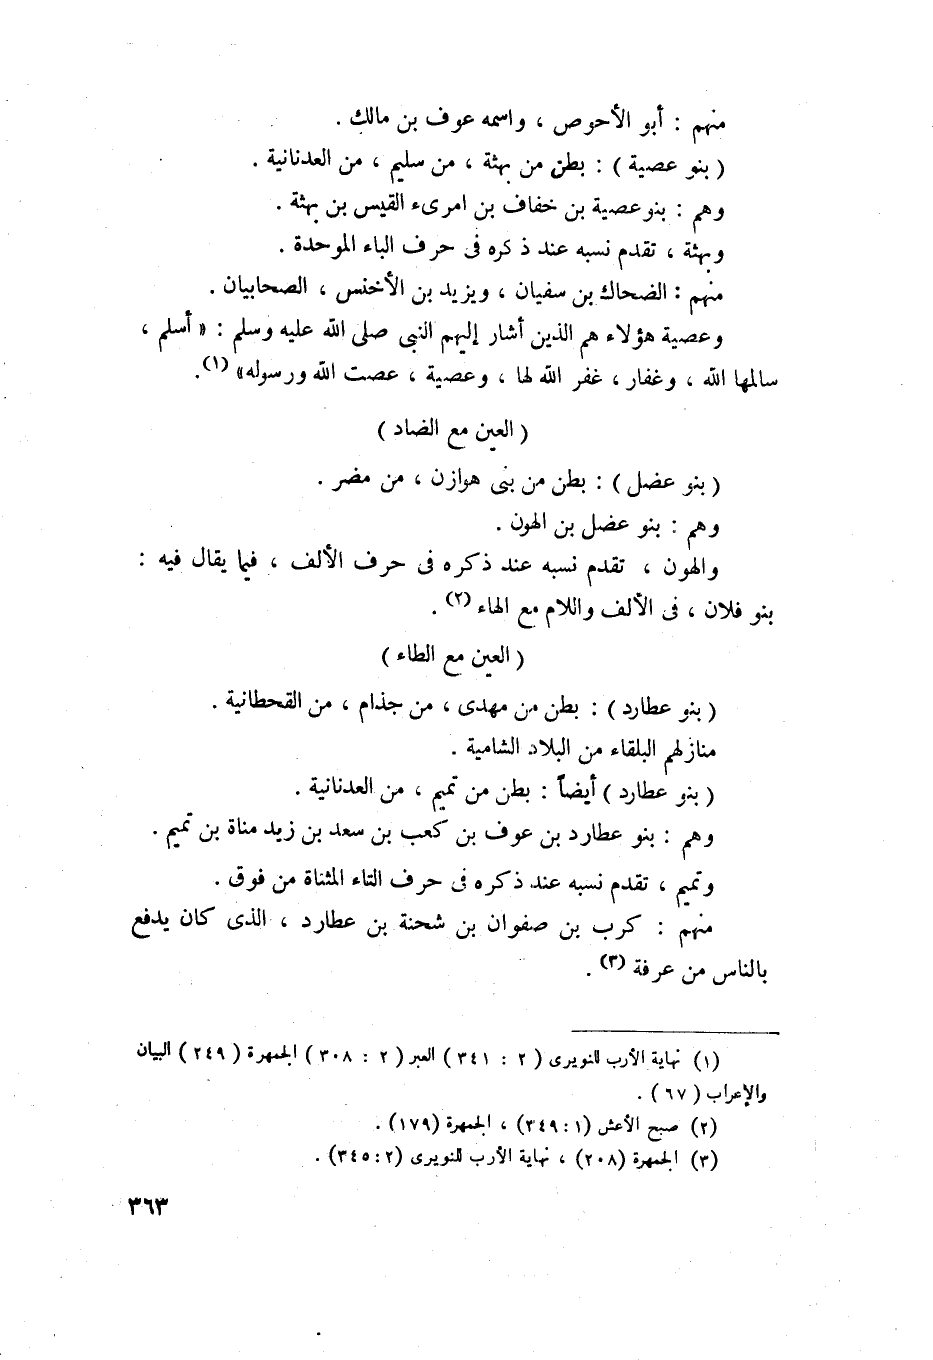 منهم : أبو الأحوص ، واسمه عوف بن مالك .
( بنو عصية ) : بطن من بهثة ، من سليم ، من العدنانية .
وهم : بنو عصية بن خفاف بن امرىء القيس بن بهثة .
وبهثة ، تقدم نسبه عند ذكره فى حرف الباء الموحدة .
منهم : الضحاك بن سفيان ، ويزيد بن الأخنس ، الصحابيان .
وعصية هؤلاء هم الذين أشار إليهم النبى صلى الله عليه وسلم : « أسلم ،
سالمها الله ، وغفار ، غفر الله لها ، وعصية ، عصت الله ورسوله» (١).
( العين مع الضاد )
( بنو عضل ) : بطن من بنى هوازن ، من مضر .
وهم : بنو عضل بن الهون .
والهون ، تقدم نسبه عند ذكره فى حرف الألف ، فيما يقال فيه :
بنو فلان ، فى الألف واللام مع الهاء (٢) .
( العين مع الطاء )
( بنو عطارد ) : بطن من مهدى ، من جذام ، من القحطانية .
منازلهم البلقاء من البلاد الشامية .
( بنو عطارد ) أيضاً : بطن من تميم ، من العدنانية .
وهم : بنو عطارد بن عوف بن كعب بن سعد بن زيد مناة بن تميم .
وتميم ، تقدم نسبه عند ذكره فى حرف التاء المثناة من فوق .
منهم : كرب بن صفوان بن شحنة بن عطارد ، الذى كان يدفع
بالناس من عرفة (٣) .
(١) نهاية الأرب للنويرى ( ٢ : ٣٤١ ) العبر ( ٢ : ٣٠٨ ) الجمهرة ( ٢٤٩ ) البيان
والإعراب ( ٦٧ ) .
(٢) صبح الأعش (١ : ٣٤٩) ، الجمهرة (١٧٩) .
(٣) الجمهرة (٢٠٨) ، نهاية الأرب للنويرى (٢ : ٣٤٥) .
٣٦٣